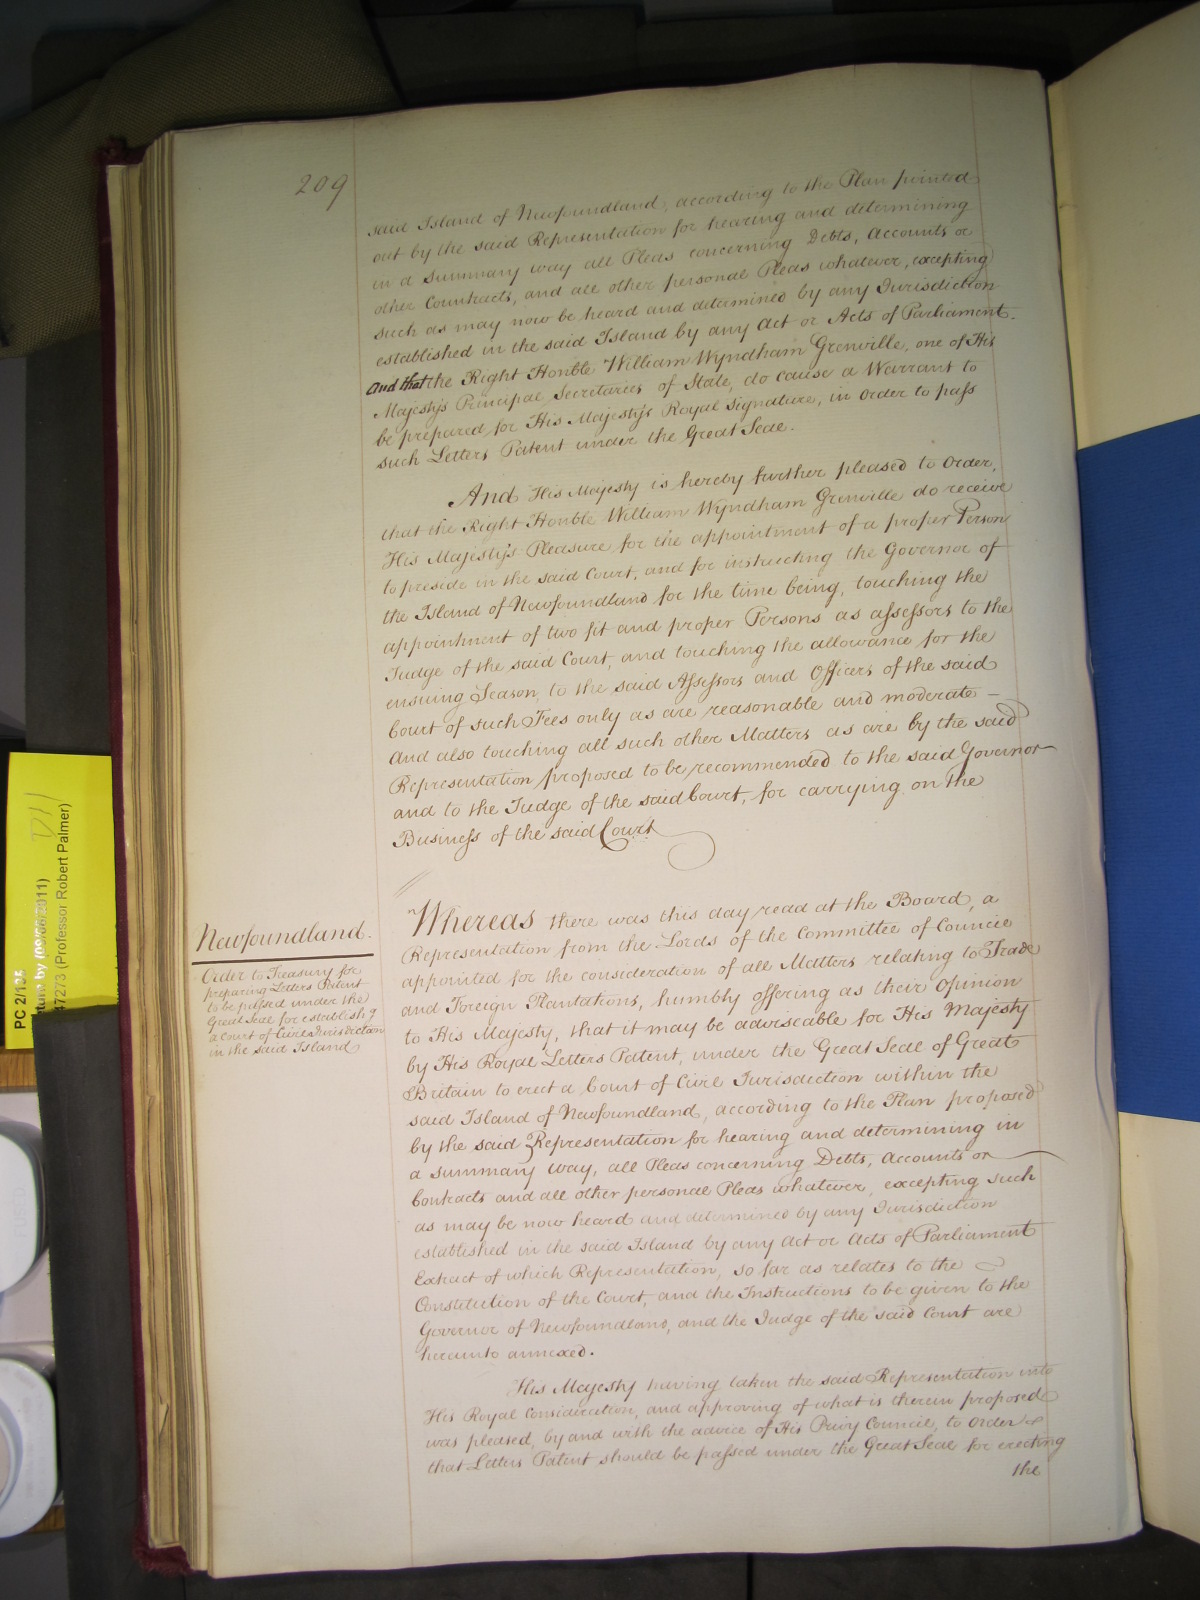 209
said Island of Newfoundland, according to the Plan pointed
out by the said Representation for hearing and determining
in a Summary way all Pleas concerning Debts, Accounts or
other Countracts, and all other personal Pleas whatever, excepting
such as may now be heard and determined by any Jurisdiction
established in the said Island by any Act or Acts of Parliament.
And that the Right Honble William Wyndham Grenville, one of His
Majesty's Principal Secretaries of State, do cause a Warrant to
be prepared for His Majesty's Royal Signature, in order to pass
such Letters Patent under the Great Seal.
And His Majesty is hereby further pleased to Order,
that the Right Honble William Wyndham Grenville do receive
His Majesty's Pleasure for the appointment of a proper Person
to preside in the said Court, and for instructing the Governor of
the Island of Newfoundland for the time being, touching the
appointment of two fit and proper Persons as assessors to the
Judge of the said Court, and touching the allowance for the
ensuing Season, to the said Assessors and Officers of the said
Court of such Fees only as are reasonable and moderate –
And also touching all such other Matters as are by the said
Representation proposed to be recommended to the said Governor
and to the Judge of the said Court, for carrying on the
Business of the said Court
Newfoundland.
Order to Treasury for
preparing Letters Patent
to be passed under the
Great Seal for establishg
a Court of Civil Jurisdiction
in the said Island
Whereas there was this day read at the Board, a
Representation from the Lords of the Committee of Council
appointed for the consideration of all Matters relating to Trade
and Foreign Plantations, humbly offering as their opinion
to His Majesty, that it may be adviseable for His Majesty
by His Royal Letters Patent, under the Great Seal of Great
Britain to erect a Court of Civil Jurisdiction within the
said Island of Newfoundland, according to the Plan proposed
by the said Representation for hearing and determining in
a summary way, all Pleas concerning Debts, Accounts or
Contracts and all other personal Pleas whatever, excepting such
as may be now heard and determined by any Jurisdiction
established in the said Island by any Act or Acts of Parliament
Extract of which Representation, so far as relates to the
Constitution of the Court, and the Instructions to be given to the
Governor of Newfoundland, and the Judge of the said Court are
hereunto annexed.
His Majesty having taken the said Representation into
His Royal Consideration, and approving of what is therein proposed
was pleased, by and with the advice of His Privy Council, to order
that Letters Patent should be passed under the Great Seal for erecting
the
PC 2/135
(09/08/2011)
(Professor Robert Palmer)